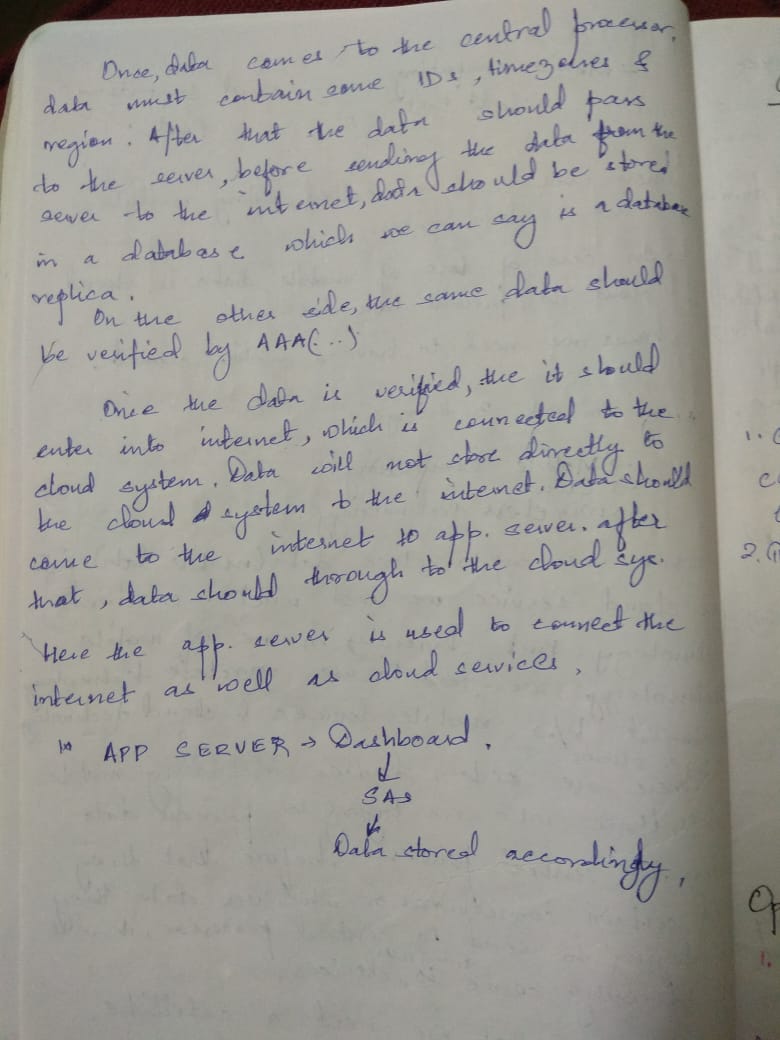 Once, data comes to the central processor,
data must contain some IDs, timezones &
region. After that the data should pass
to the server, before sending the data from the
sever to the internet, data should be stored
in a database which we can say is a database
replica.
On the other side, the same data should
be verified by AAA(...)
Once the data is verified, the it should
enter into internet, which is connected to the
cloud system. Data will not store directly to
the cloud system to the internet. Data should
come to the internet to app. server. after
that, data should through to the cloud sys.
Here the app. server is used to connect the
internet as well as cloud services,
APP SERVER → Dashboard.
↓
SAS
↓
Data stored accordingly,
1.
2.
Op
1.